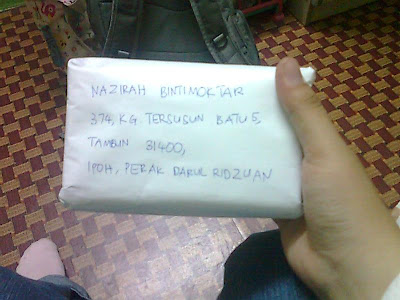 NAZIRAH BINTI MOKTAR
374, KG. TERSUSUN BATU 5,
TAMBUN 31400,
IPOH, PERAK DARUL RIDZUAN